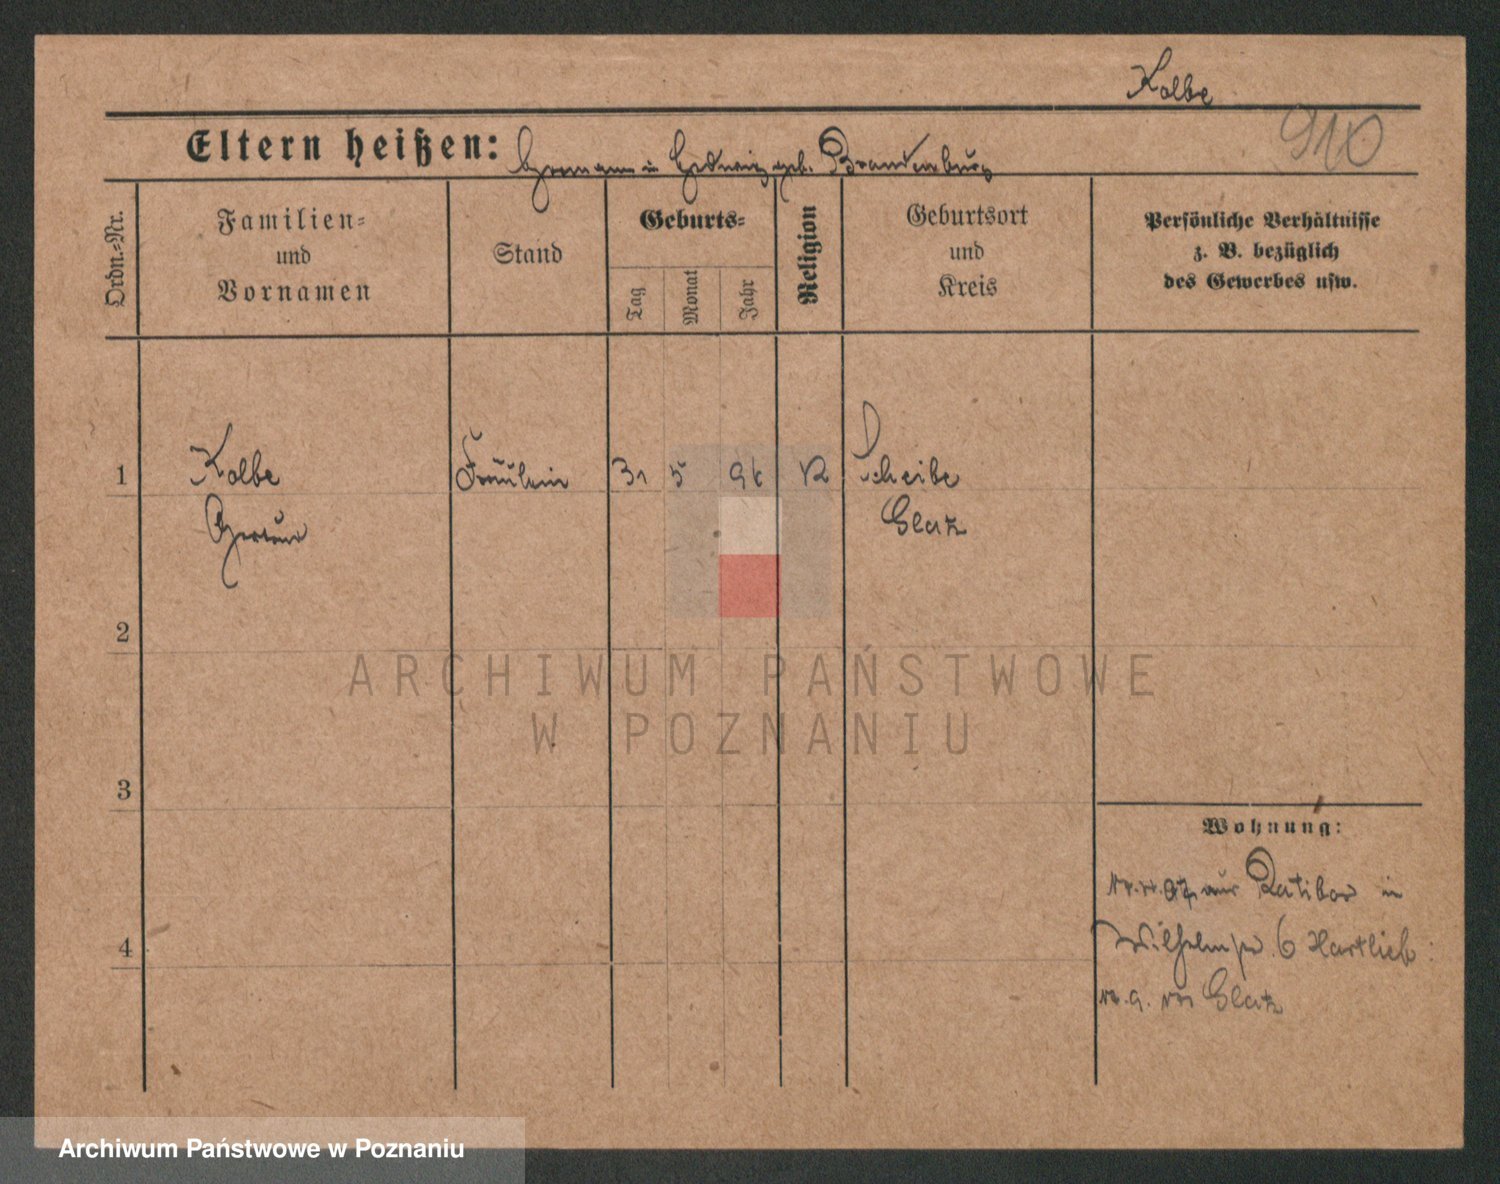 Kolbe
910
Eltern heißen: Hermann u Hedwig geb. Brandenburg
Ordn.-Nr.
Familien-
und
Vornamen
Stand
Geburts-
Tag
Monat
Jahr
Religion
Geburtsort
und
Kreis
Persönliche Verhältnisse
z. B. bezüglich
des Gewerbes usw.
1
Kolbe Fräulein 31 5 96 K Scheibe
Gertrud Glatz
2
ARCHIWUM PAŃSTWOWE
W POZNANIU
3
Wohnung:
Ratibor in
4
Wilhelmstr. 6 Hartlieb:
v. a. von Glatz
Archiwum Państwowe w Poznaniu